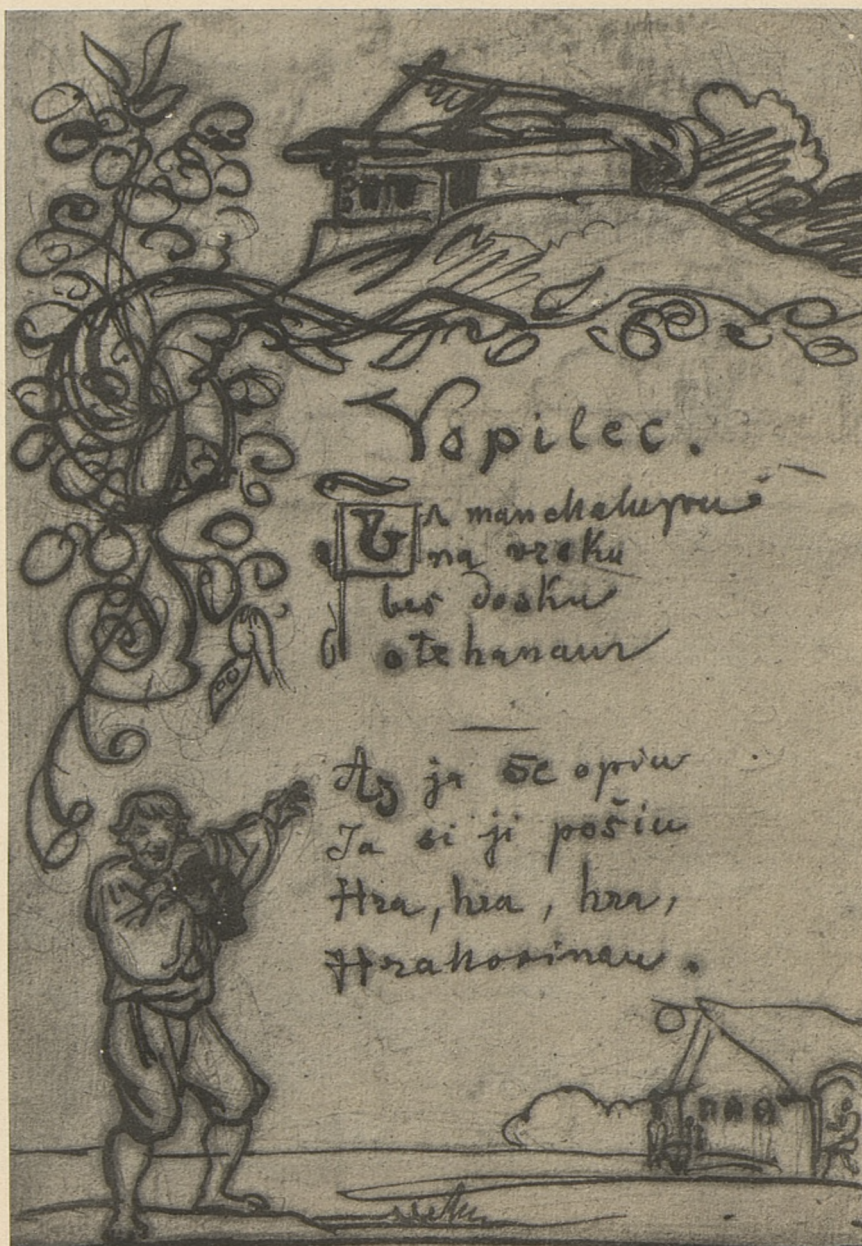 Vopilec.
Já mám chalupu
na vršku
bes došku
otehanau
Až ja se opiu
Ja si ji pošiu
Hra, hra, hra,
Hrahovinau.